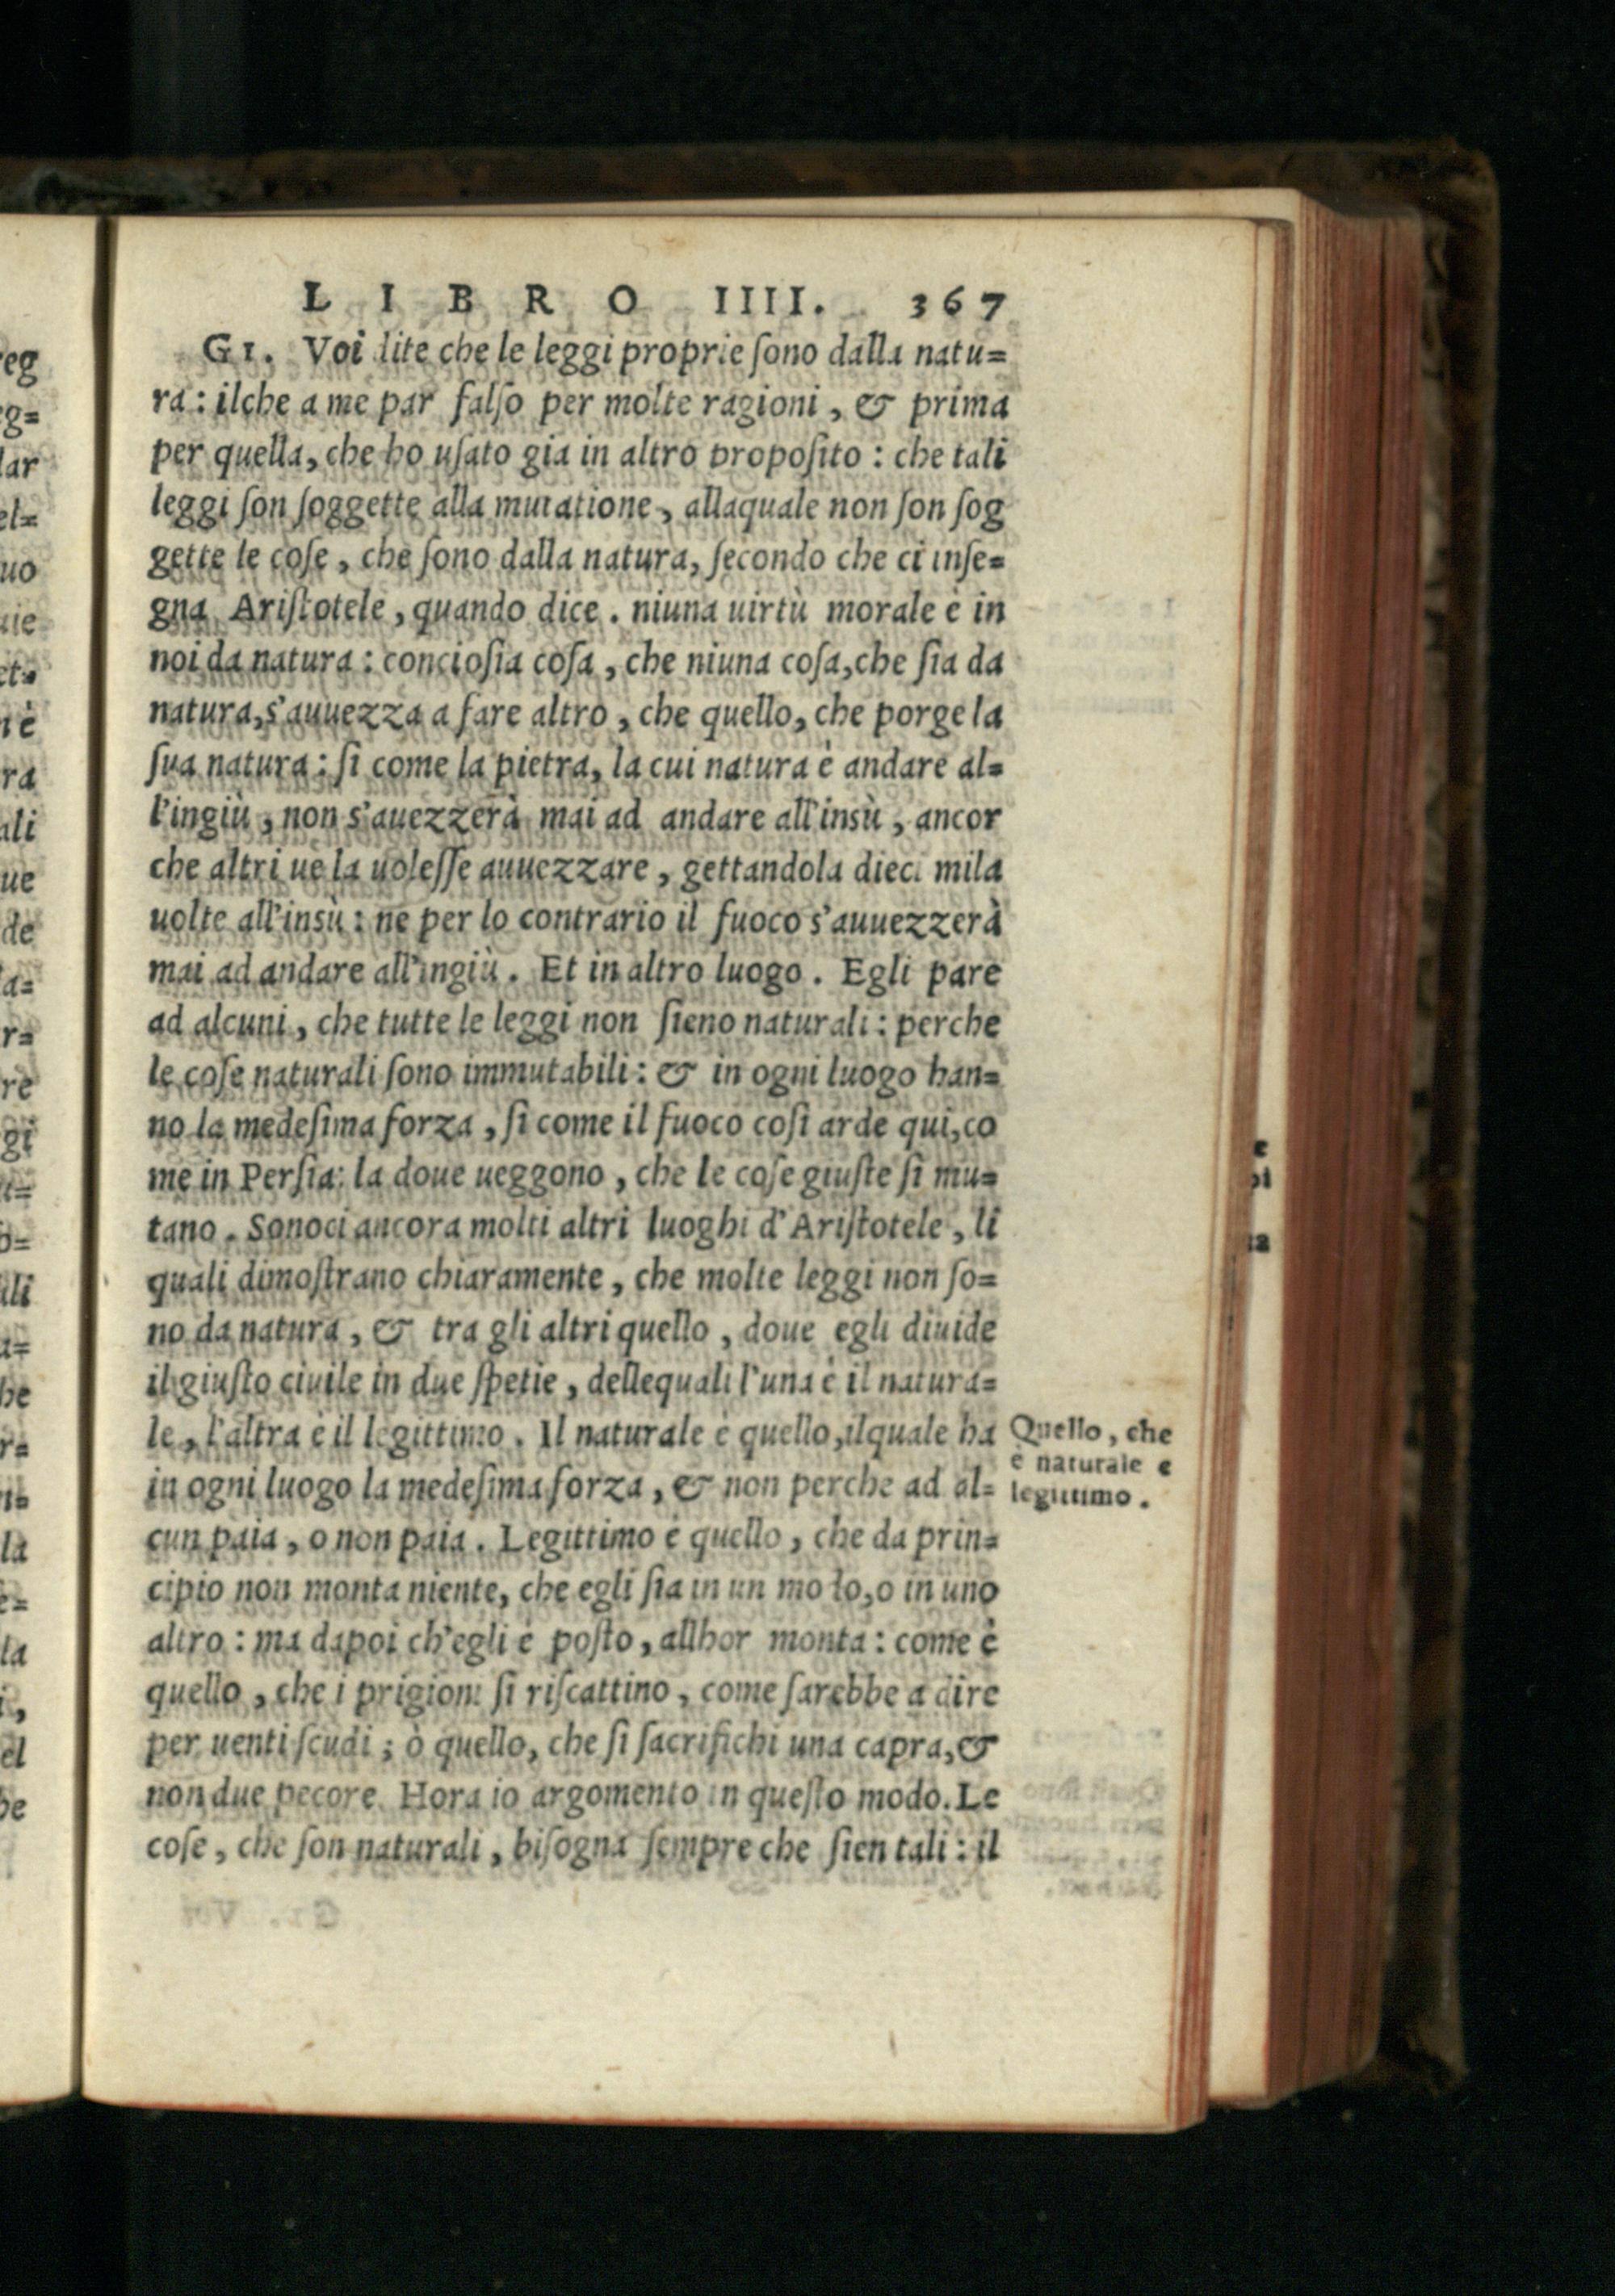 LIBRO IIII. 367
GI. Voi dite che le leggi proprie ſono dalla natu=
ra: ilche a me par falſo per molte ragioni, & prima
per quella, che ho uſato gia in altro propoſito: che tali
leggi ſon ſoggette alla mutatione, allaquale non ſon ſog
gette le coſe, che ſono dalla natura, ſecondo che ci inſe=
gna Ariſtotele, quando dice. niuna uirtù morale è in
noi da natura: concioſia coſa, che niuna coſa, che ſia da
natura, s'auuezza a fare altro, che quello, che porge la
ſua natura: ſi come la pietra, la cui natura è andare al=
l'ingiù, non s'auezzerà mai ad andare all'insù, ancor
che altri ue la uoleſſe auuezzare, gettandola dieci mila
uolte all'insù: ne per lo contrario il fuoco s'auuezzerà
mai ad andare all'ingiù. Et in altro luogo. Egli pare
ad alcuni, che tutte le leggi non ſieno naturali: perche
le coſe naturali ſono immutabili: & in ogni luogo han=
no la medeſima forza, ſi come il fuoco coſi arde qui, co
me in Perſia: la doue ueggono, che le coſe giuſte ſi mu=
tano. Sonoci ancora molti altri luoghi d'Ariſtotele, li
quali dimoſtrano chiaramente, che molte leggi non ſo=
no da natura, & tra gli altri quello, doue egli diuide
il giuſto ciuile in due ſpetie, dellequali l'una è il natura=
le, l'altra è il legittimo. Il naturale è quello, ilquale ha
in ogni luogo la medeſima forza, & non perche ad al=
cun paia, o non paia. Legittimo è quello, che da prin=
cipio non monta niente, che egli ſia in un modo, o in uno
altro: ma dapoi ch'egli è poſto, allhor monta: come è
quello, che i prigioni ſi riſcattino, come ſarebbe a dire
per uenti ſcudi; ò quello, che ſi ſacrifichi una capra, &
non due pecore. Hora io argomento in queſto modo. Le
coſe, che ſon naturali, biſogna ſempre che ſien tali: il
Quello, che
è naturale e
legittimo.